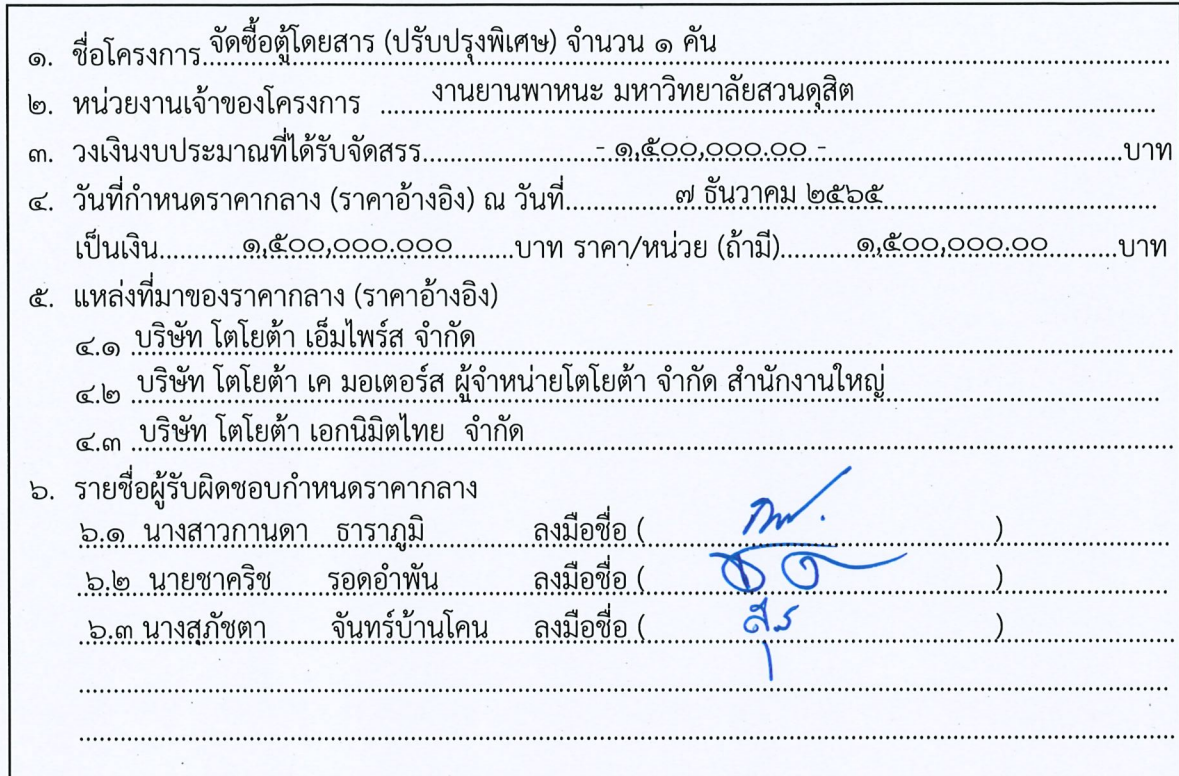 ๑. ชื่อโครงการ จัดซื้อตู้โดยสาร (ปรับปรุงพิเศษ) จำนวน ๑ คัน
๒. หน่วยงานเจ้าของโครงการ งานยานพาหนะ มหาวิทยาลัยสวนดุสิต
๓. วงเงินงบประมาณที่ได้รับจัดสรร - ๑,๕๐๐,๐๐๐.๐๐ - บาท
๔. วันที่กำหนดราคากลาง (ราคาอ้างอิง) ณ วันที่ ๗ ธันวาคม ๒๕๖๕
เป็นเงิน ๑,๕๐๐,๐๐๐.๐๐๐ บาท ราคา/หน่วย (ถ้ามี) ๑,๕๐๐,๐๐๐.๐๐ บาท
๕. แหล่งที่มาของราคากลาง (ราคาอ้างอิง)
๔.๑ บริษัท โตโยต้า เอ็มไพร์ส จำกัด
๔.๒ บริษัท โตโยต้า เค มอเตอร์ส ผู้จำหน่ายโตโยต้า จำกัด สำนักงานใหญ่
๔.๓ บริษัท โตโยต้า เอกนิมิตไทย จำกัด
๖. รายชื่อผู้รับผิดชอบกำหนดราคากลาง
๖.๑ นางสาวกานดา ธาราภูมิ ลงมือชื่อ ( )
๖.๒ นายชาคริช รอดอำพัน ลงมือชื่อ ( )
๖.๓ นางสุภัชตา จันทร์บ้านโคน ลงมือชื่อ ( )